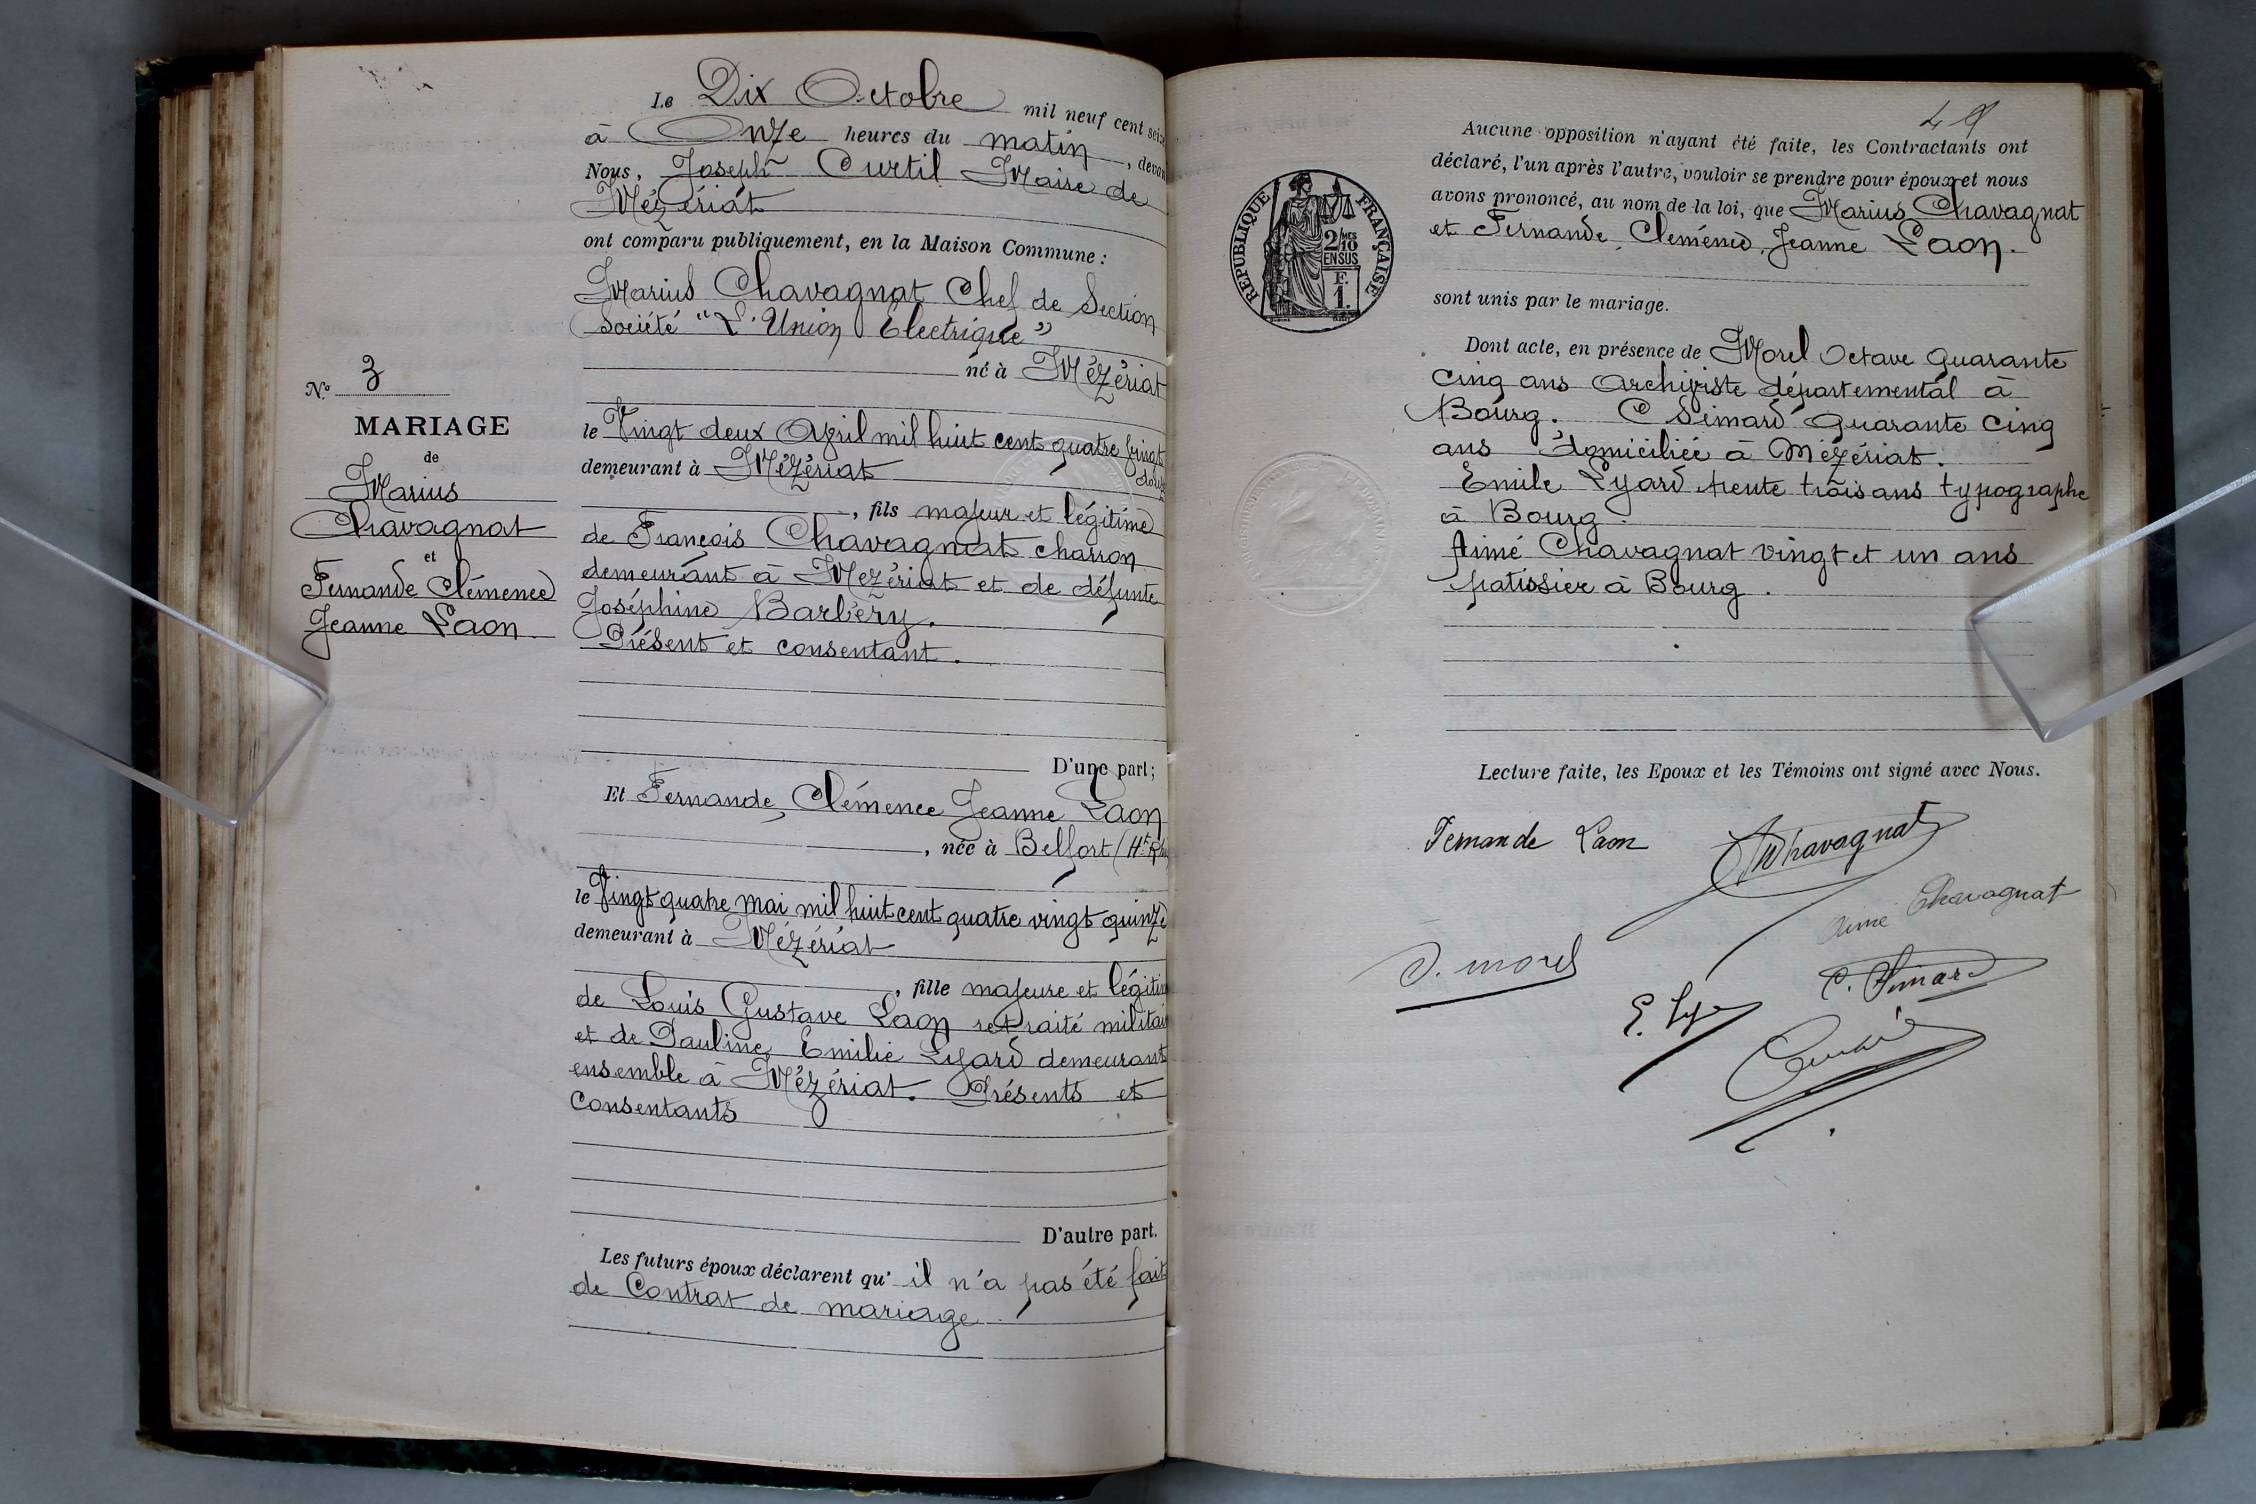 Le Dix Octobre mil neuf cent seize
à Onze heures du matin, devant
Nous, Joseph Curtil Maire de
Mézériat
ont comparu publiquement, en la Maison Commune :
Marius Chavagnat Chef de Section
Société "L'Union Electrique"
né à Mézériat
le Vingt deux Avril mil huit cent quatre vingt
demeurant à Mézériat
, fils majeur et légitime
de François Chavagnat charron
demeurant à Mézériat et de défunte
Joséphine Barbery.
Présent et consentant.
D'une part;
Et Fernande, Clémence Jeanne Laon
, née à Belfort (Ht Rhin
le Vingt quatre mai mil huit cent quatre vingt quinze
demeurant à Mézériat
, fille majeure et légitim
de Louis Gustave Laon retraité militai
et de Pauline, Emilie Lyard demeurant
ensemble à Mézériat. Présents et
consentants
D'autre part.
Les futurs époux déclarent qu' il n'a pas été fait
de Contrat de mariage
N° 3
MARIAGE
de
Marius
Chavagnat
et
Fernande Clémence
Jeanne Laon
Aucune opposition n'ayant été faite, les Contractants ont
déclaré, l'un après l'autre, vouloir se prendre pour époux et nous
avons prononcé, au nom de la loi, que Marius Chavagnat
et Fernande, Clémence, Jeanne Laon.
sont unis par le mariage.
Dont acte, en présence de Morel Octave quarante
cinq ans Archiviste départemental à
Bourg. C Simard quarante cinq
ans domiciliée à Mézériat.
Emile Lyard trente trois ans typographe
à Bourg.
Aimé Chavagnat vingt et un ans
patissier à Bourg.
Lecture faite, les Epoux et les Témoins ont signé avec Nous.
Fernande Laon
Chavagnat
Aimé Chavagnat
O. Morel
C. Simard
RÉPUBLIQUE FRANÇAISE
2/10
MES
EN SUS
F.
1.